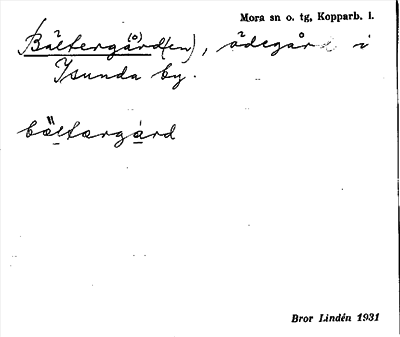 Mora sn o. tg, Kopparb. l.
Bältergård(en), ödegård i
Isunda by.
bältærgård
Bror Lindén 1931